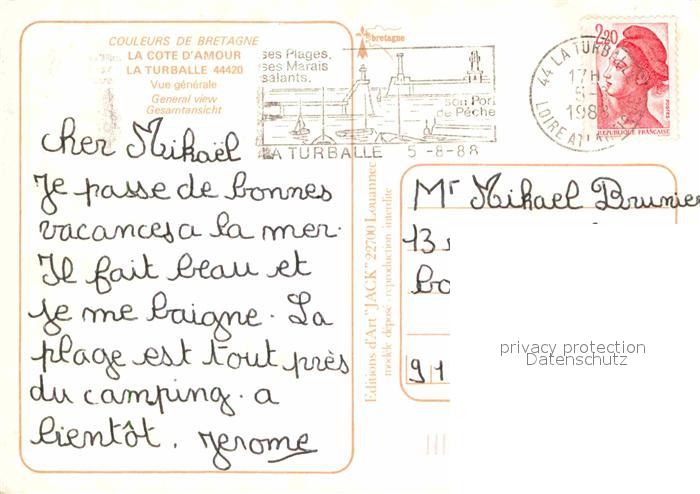 COULEURS DE BRETAGNE
LA COTE D'AMOUR
LA TURBALLE 44420
Vue générale
General view
Gesamtansicht
bretagne
ses Plages,
ses Marais
salants,
son Port
de Pêche
LA TURBALLE 5-8-88
44 LA TURBALLE
17H
5-
1988
LOIRE ATLANTIQUE
2,20
POSTES
REPUBLIQUE FRANÇAISE
cher Mikaël
Je passe de bonnes
vacances a la mer.
Il fait beau et
je me baigne. La
plage est tout près
du camping. a
bientôt. Jerome
Editions d'Art "JACK" 22700 Louannec
modèle déposé - reproduction interdite
Mr Mikael Brunier
13
bo
91
privacy protection
Datenschutz